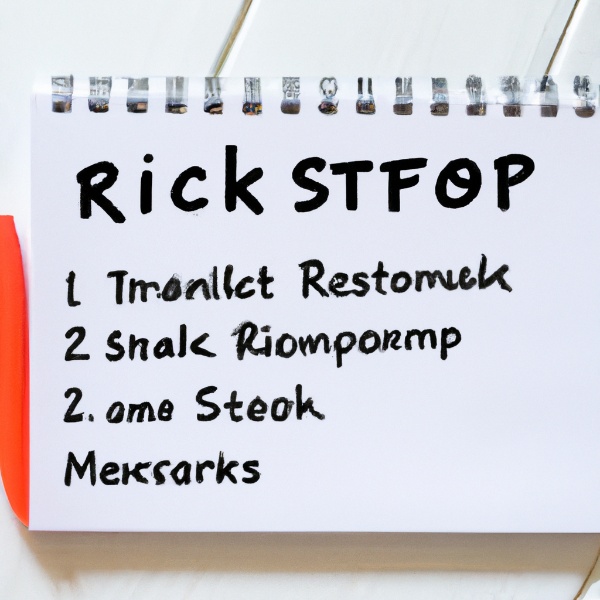 Rick STFOP
1 Tmonllct Restomuek
2 Snalk Riompormp
2. ome Steok
Mersarks